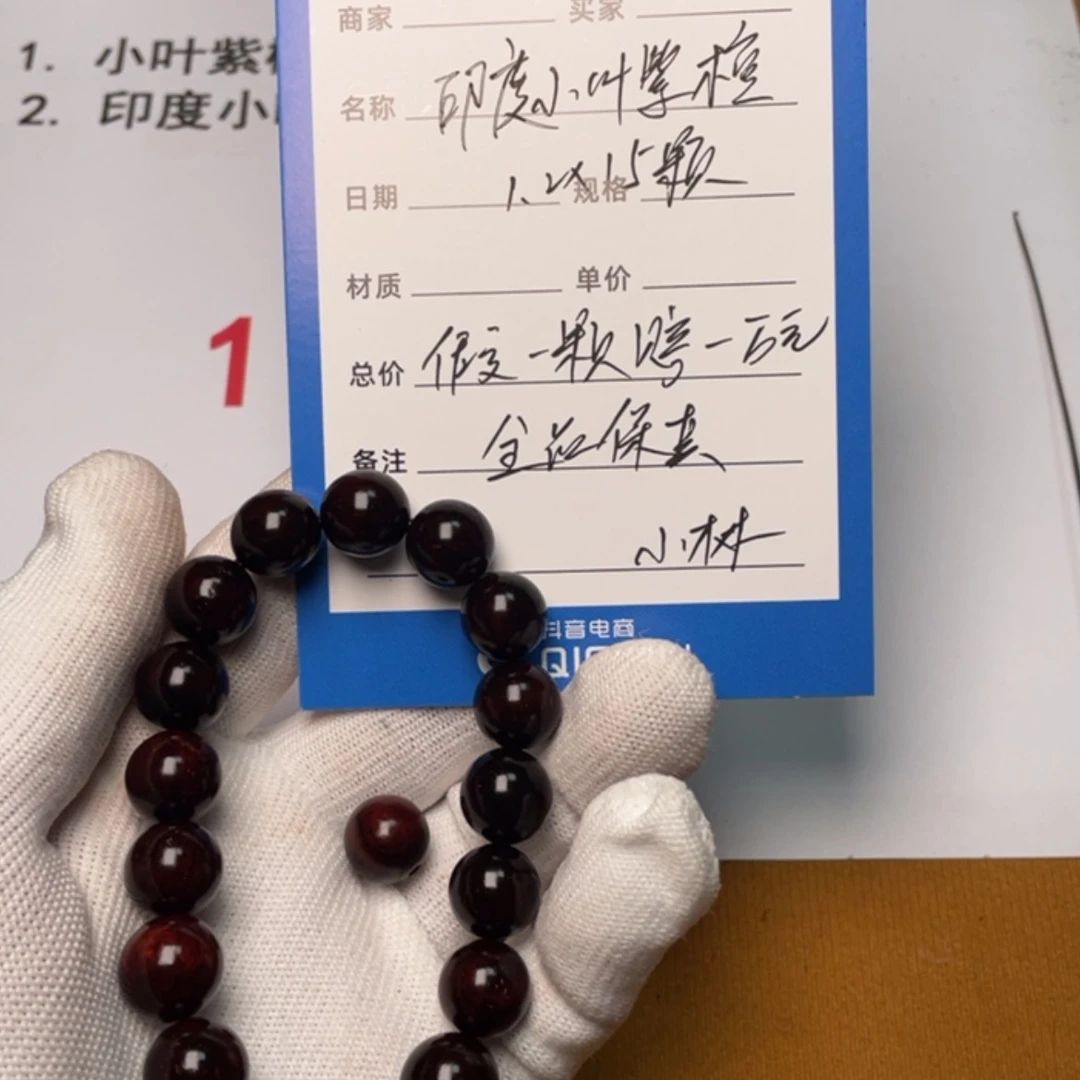 1. 小叶紫
2. 印度小
1
商家 买家
名称 印度小叶紫檀
日期 1.2X15颗 规格
材质 单价
总价 假一颗赔一万元
备注 全品保真
小树
抖音电商